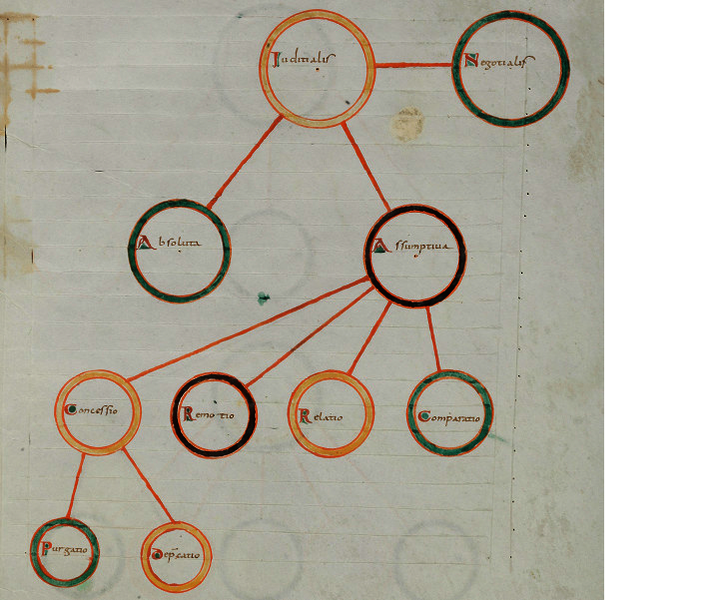 Iuditialis
Negotialis
Absoluta
Assumptiua
Concessio
Remotio
Relatio
Comparatio
Purgatio
Dep̄catio